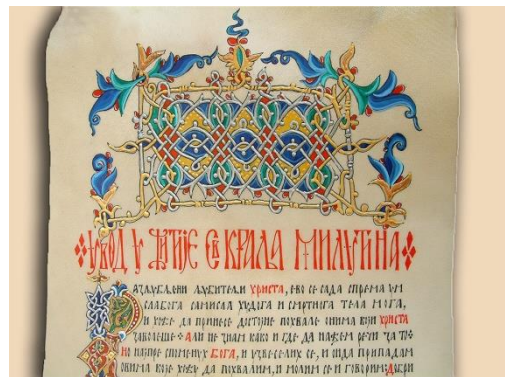 УВОД У ЖИТИЈЕ СВ КРАЉА МИЛУТИНА
РАЗЉУБЉЕНИ ЉУБИТЕЉИ ХРИСТА, ЕВО СЕ САДА СПРЕМА УМ
СЛАБОГА САМИСЛА ХУДОГА И СМРТНОГА ТЕЛА МОГА,
И ХОЋЕ ДА ПРИНЕСЕ ДОСТОЈНЕ ПОХВАЛЕ ОНИМА КОЈИ ХРИСТА
ЗАВОЛЕШЕ АЛИ НЕ ЗНАМ КАКО И ГДЕ ДА НАЂЕМ РЕЧИ ЗА ТО
НО НАЈПРЕ СПОМЕНУХ БОГА, И УЗВЕСЕЛИХ СЕ, И ОНДА ПРИПАДАМ
ОНИМА КОЈЕ ХОЋУ ДА ПОХВАЛИМ, И МОЛИМ СЕ И ГОВОРИМ ДОБРИ